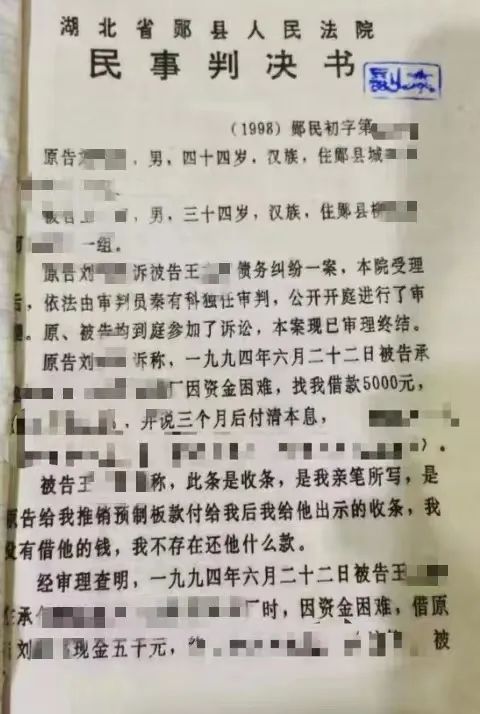 湖北省郧县人民法院
民事判决书
(1998)郧民初字第
原告刘，男，四十四岁，汉族，住郧县城
被告王，男，三十四岁，汉族，住郧县柳
一组。
原告刘诉被告王债务纠纷一案，本院受理
后，依法由审判员秦有科独任审判，公开开庭进行了审
理。原、被告均到庭参加了诉讼，本案现已审理终结。
原告刘诉称，一九九四年六月二十二日被告承
厂因资金困难，找我借款5000元，
，并说三个月后付清本息，
)。
被告王称，此条是收条，是我亲笔所写，是
原告给我推销预制板款付给我后我给他出示的收条，我
没有借他的钱，我不存在还他什么款。
经审理查明，一九九四年六月二十二日被告王
在承厂时，因资金困难，借原
刘现金五千元，被